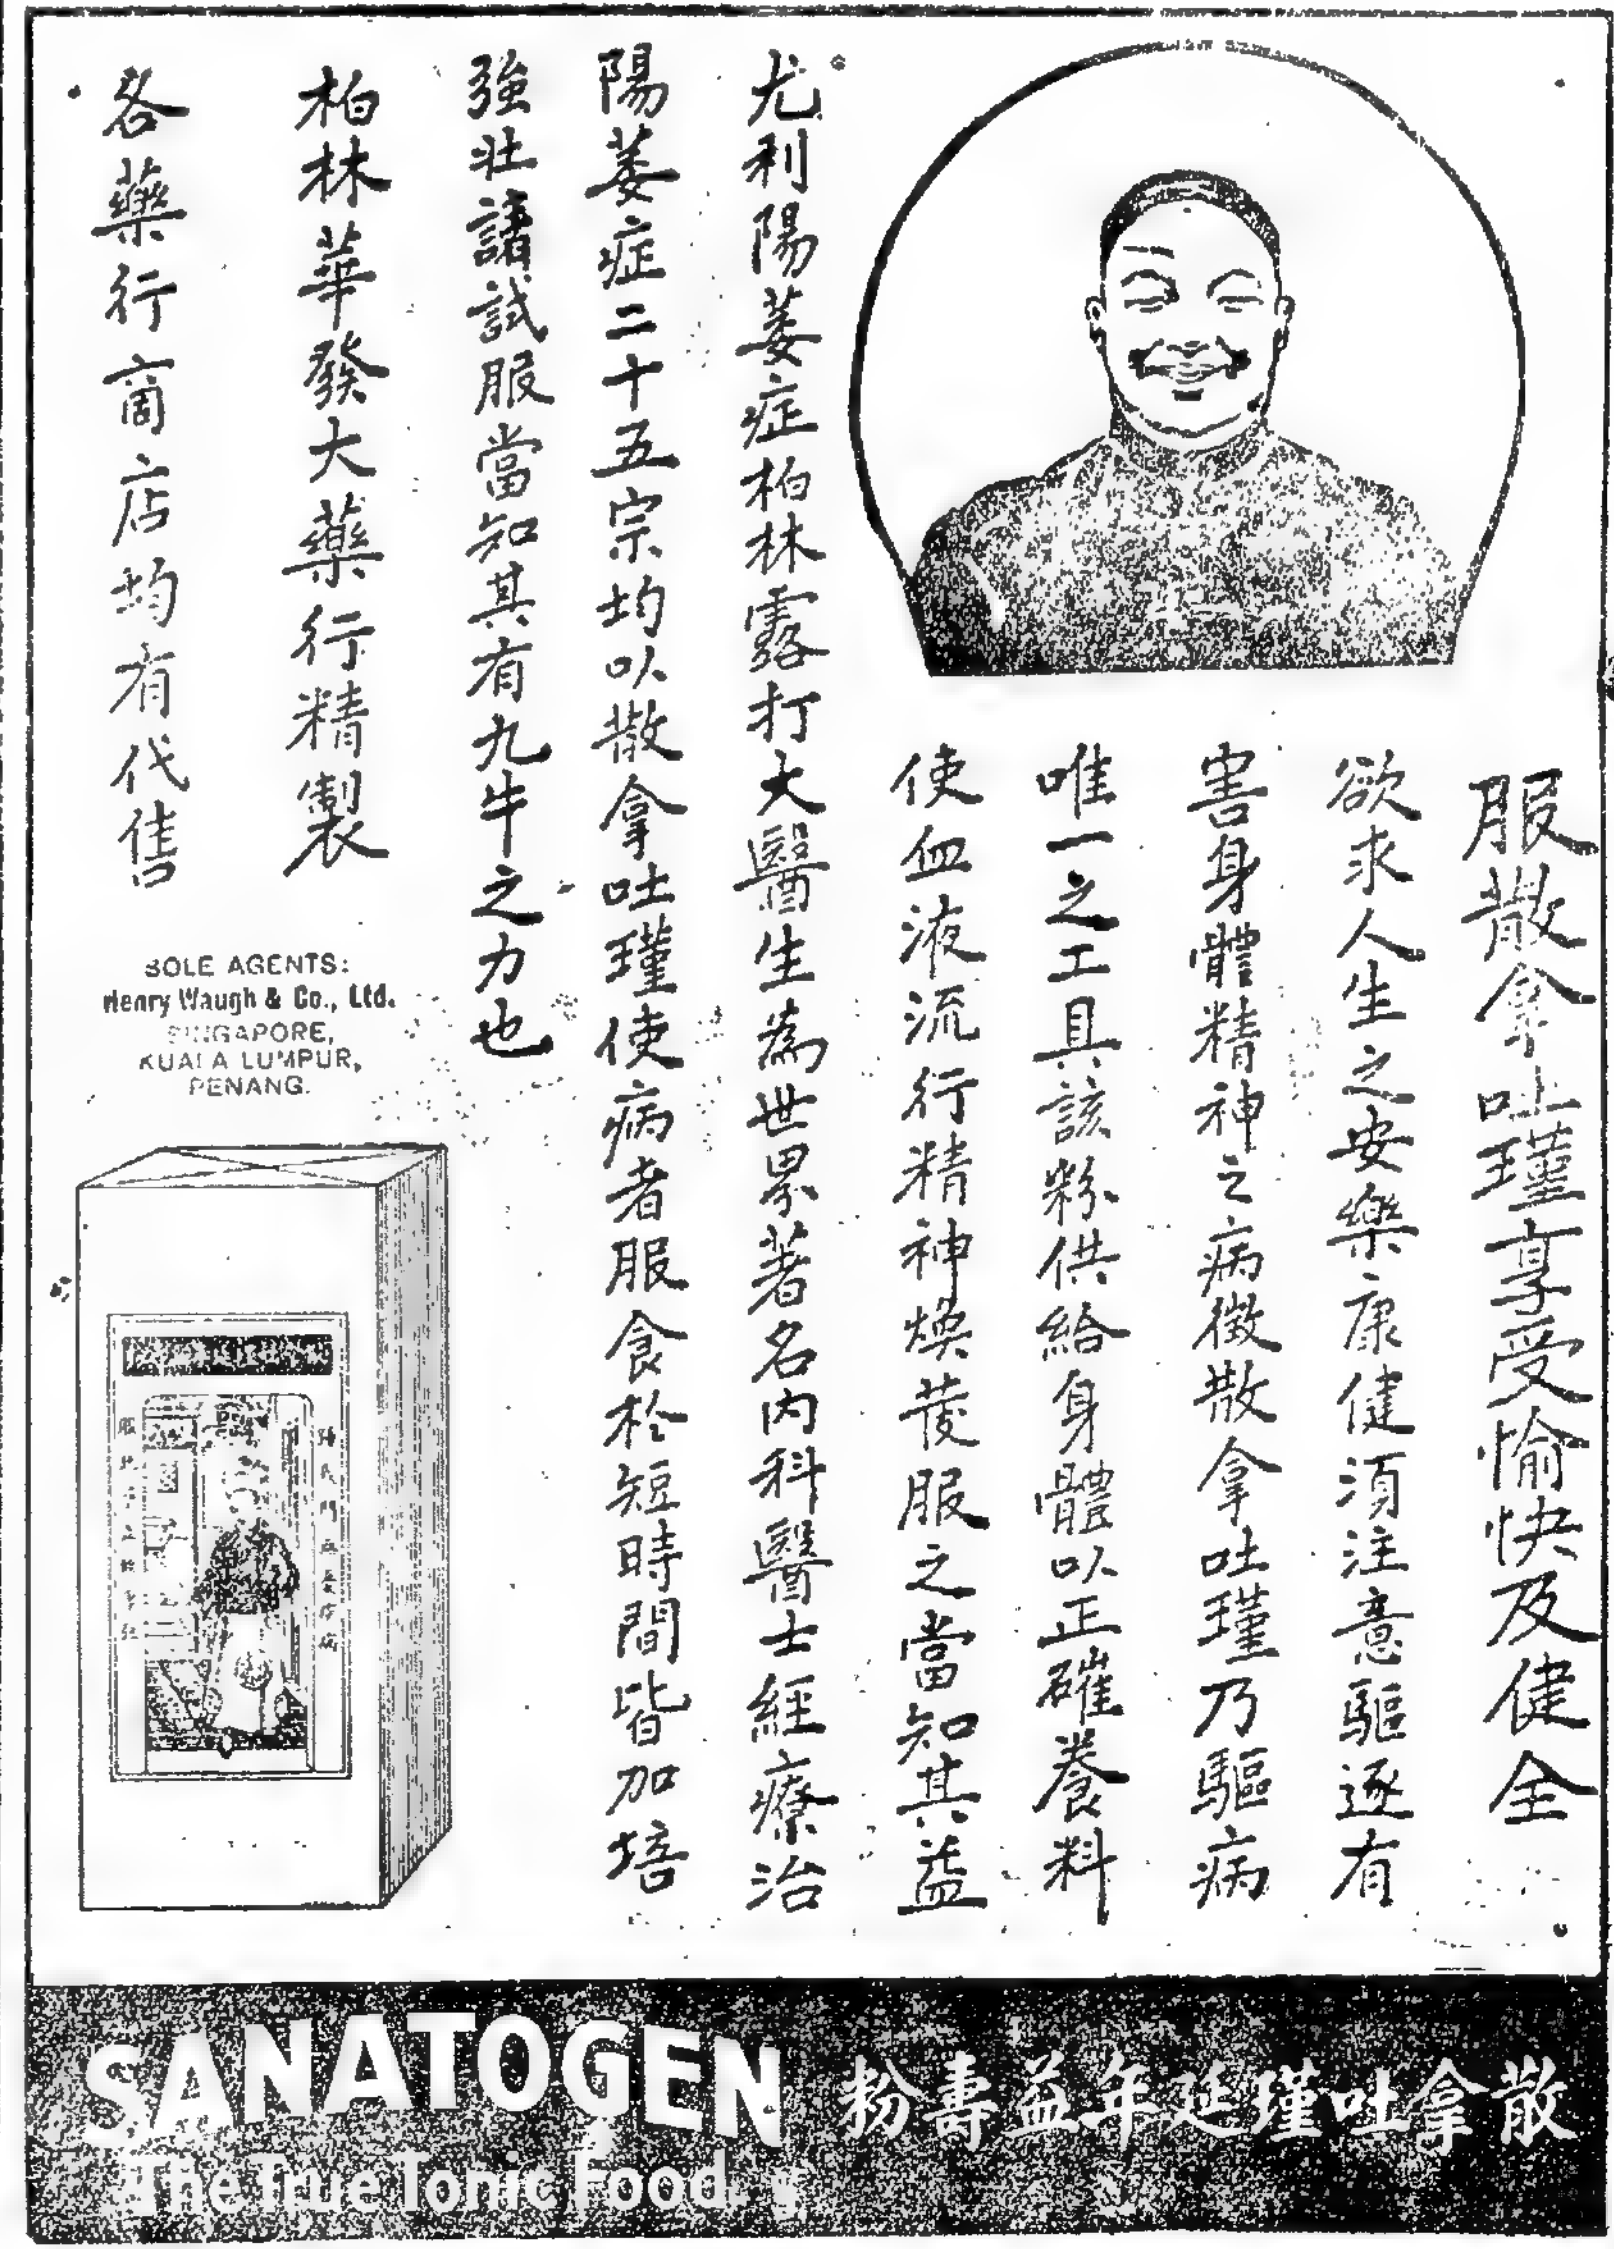 服散拿吐瑾享受愉快及健全
欲求人生之安樂康健須注意驅逐有
害身體精神之病徵散拿吐瑾乃驅病
唯一之工具該粉供給身體以正確養料
使血液流行精神煥發服之當知其益
尤利陽萎症柏林露打大醫生為世界著名內科醫士經療治
陽萎症二十五宗均以散拿吐瑾使病者服食於短時間皆加培
強壯請試服當知其有九牛之力也
柏林華發大藥行精製
各藥行商店均有代售
SOLE AGENTS:
Henry Waugh & Co., Ltd.
SINGAPORE,
KUALA LUMPUR,
PENANG.
SANATOGEN
The True Tonic Food
散拿吐瑾延年益壽粉